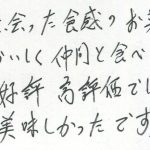 会った食感のお
いしく仲間と食べ
好評 高評価でし
美味しかったです